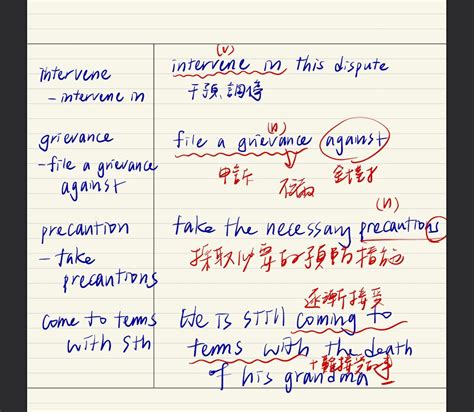 intervene
- intervene in
(v)
intervene in this dispute
干預,調停
grievance
- file a grievance
against
(n)
file a grievance against
申訴 不滿 針對
precaution
- take
precautions
(n)
take the necessary precautions
採取必要的預防措施
come to terms
with sth
逐漸接受
We is still coming to
terms with the death
of his grandma